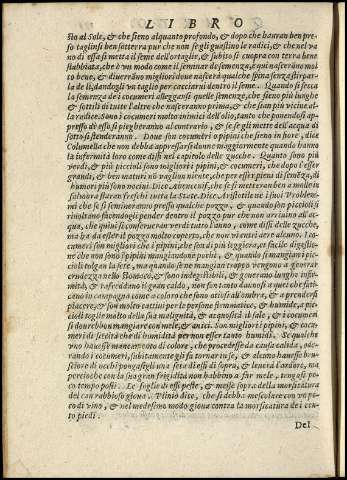 LIBRO
sto al Sole, & che sieno alquanto profondo, & dopo che hauran ben pre
so taglinsi ben sotterra pur che non se gli guastino le radici, & che nel va
no di essa si metta il seme dell'ortaglie, & subito si cuopra con terra bene
stabbiata, che è un modo come il semenzar di semenza, & qui nasceranno mol
to bene, & diuerràno migliori doue nascerà qualche spina senza stirpar
la de li, dandogli un taglio per cacciarui dentro il seme. Quando si secca
la semenza de i cocumeri alleggansi quelle semenze, che sieno più lunghe
& sottili di tutte l'altre che nasceranno prima, & che stan più vicine al
la radice. Sono i cocumeri molto inimici dell'olio, tanto che ponendosi ap
presso di essi si piegheranno al contrario, & se se gli mette dell'acqua di
sotto si stenderanno. Doue son cocumeri o pipini che sieno in fiore, dice
Columella che non debba appressarsi donne maggiormente quando hanno
la infirmità loro come dissi nel capitolo delle zucche. Quanto sono più
verdi, & più piccioli sono migliori i pipini, & cocumeri, che dopo l'esser
grandi, & ben maturi nò vagliono niente, che per essere pieni di semèza, di
humori più sono nociui. Dice Abencenif, che se si metteran ben a molle in
salnoura staran freschi tutta la state. Dice Aristotile ne i suoi Proble-
mi che se si semineranno presso qualche pozzo, & quando son piccioli si
riuoltano facendogli pender dentro il pozzo pur che non arriuino all'ac
qua, che quiui si conserueran verdi tutto l'anno, come dissi delle zucche,
ma ha da esser il pozzo coperto, & che non vi entri aere alcuno. I co-
cumeri son migliori che i pipini, che son di più leggiero, & facile digestio
ne che non sono i pipini mangiandone pochi, & quando si mangian i pic
cioli tolgan la sete, mangiandosene mangiar troppo vengono a generar
crudezza nello stomaco, & sono indegestibili, & generano lunghe infir
mità, & rafreddano il gran caldo, non son tanto dannosi a quei che fati-
cano in campagna come a coloro che sono otiosi all'ombra, & a prendersi
piacere, & son molto cattiui per le persone amalatice, & humide, a pic
cioli toglie molto della sua malignità, & acquosità il sale, & i cocumeri
si dourebbon mangiare con mele, & anici. Son migliori i pipini, & cocu
meri di seccità che di humidità per non esser tanto humidi. Se qualch'
uno hauesse mancamento di calore, che procedesse da causa calida, odo-
rando i cocumeri, subitamente gli fa tornar in se, & alcuno hauesse bru-
sciore di occhi pongasegli una seta di essi di sopra, & leuerà l'ardore, ma
percioche con la sua gran frigidità non habbino a far mele, tengasi po
co tempo posti. Le foglie di essi peste, & messe sopra della morsicatura
del can rabbioso gioua. Plinio dice, che si debba mescolare con vn po
co di vino, & nel medesimo modo gioua contra la morsicatura de i cen-
to piedi.
Del